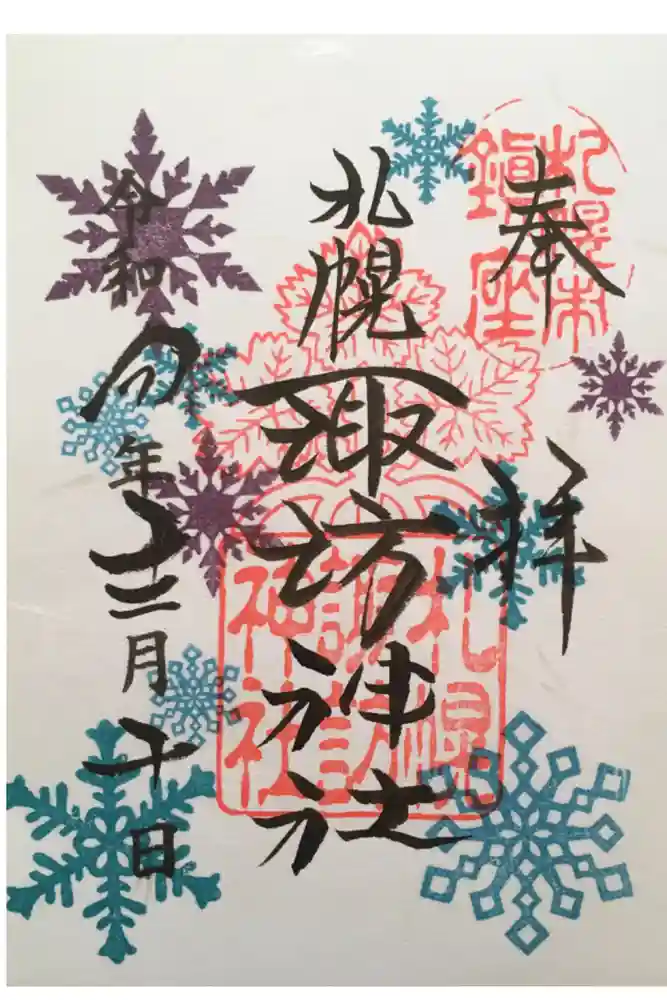 奉拝
札幌市鎮座
札幌諏訪神社
札幌諏訪神社
令和四年 月十日